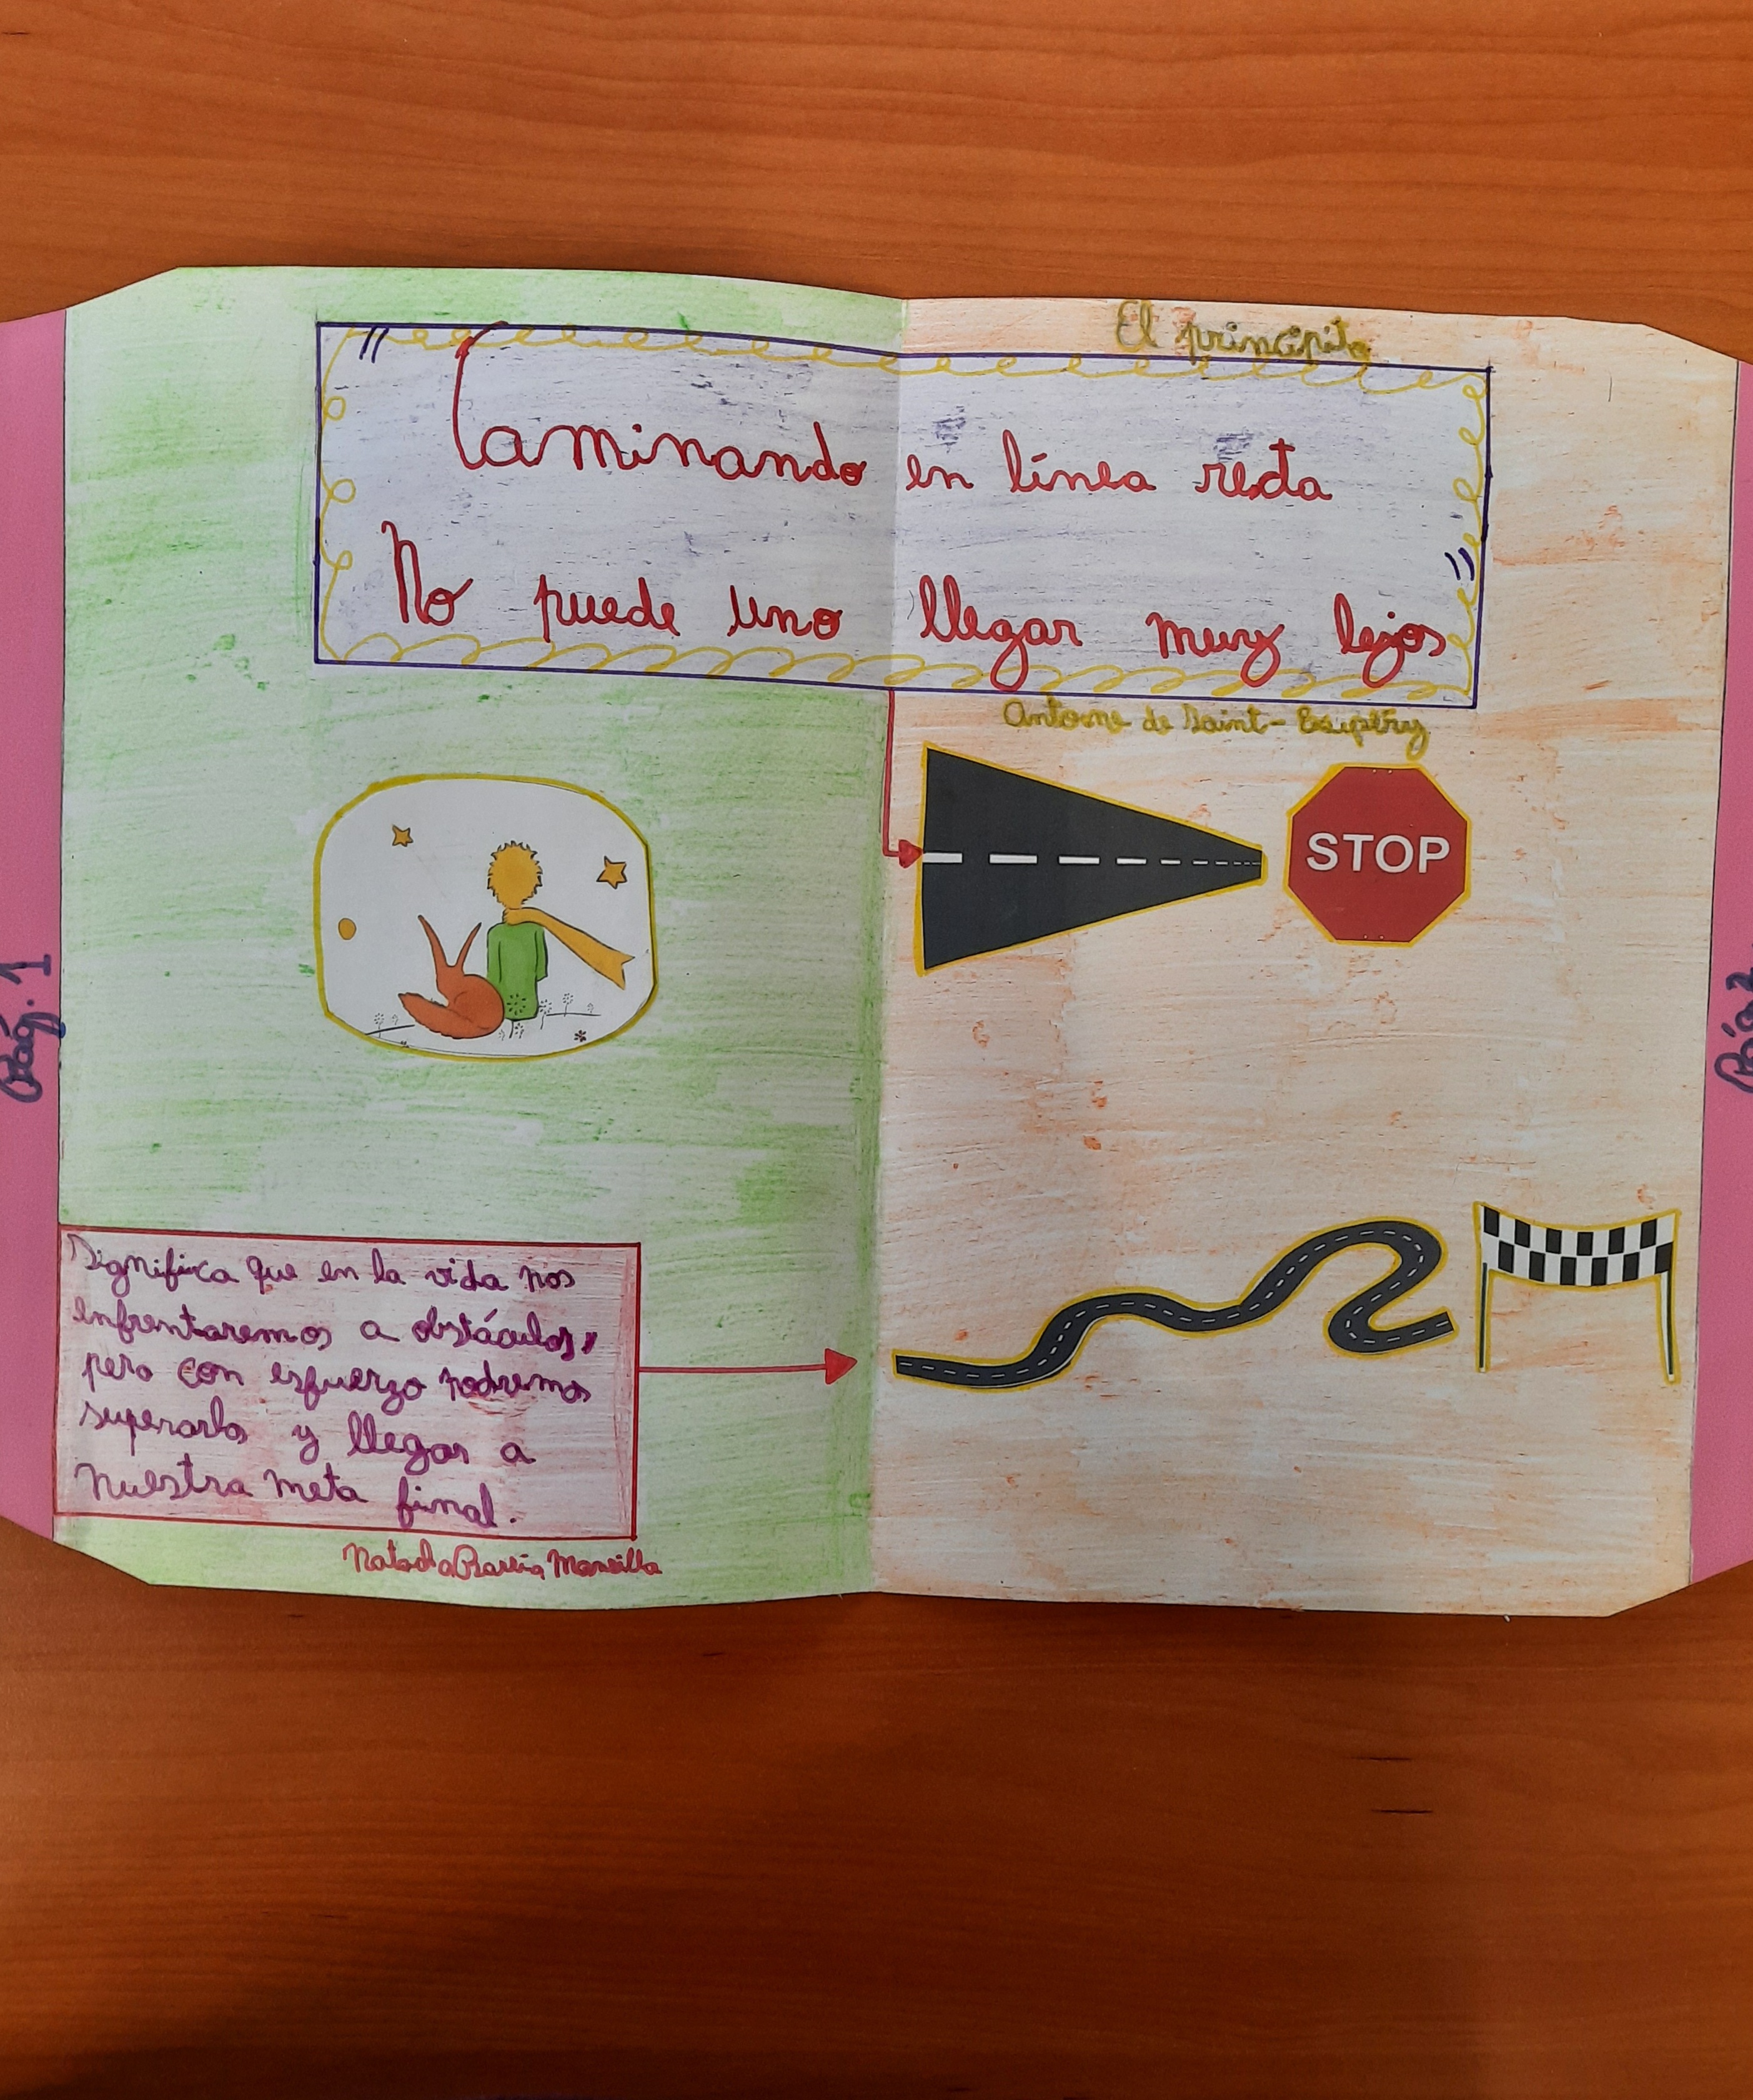 El principito
" Caminando en línea recta
No puede uno llegar muy lejos "
Antoine de Saint-Exupéry
STOP
Pág. 1
Pág. 2
Significa que en la vida nos
enfrentaremos a obstáculos,
pero con esfuerzo podremos
superarlos y llegar a
nuestra meta final.
Natacha Mansilla